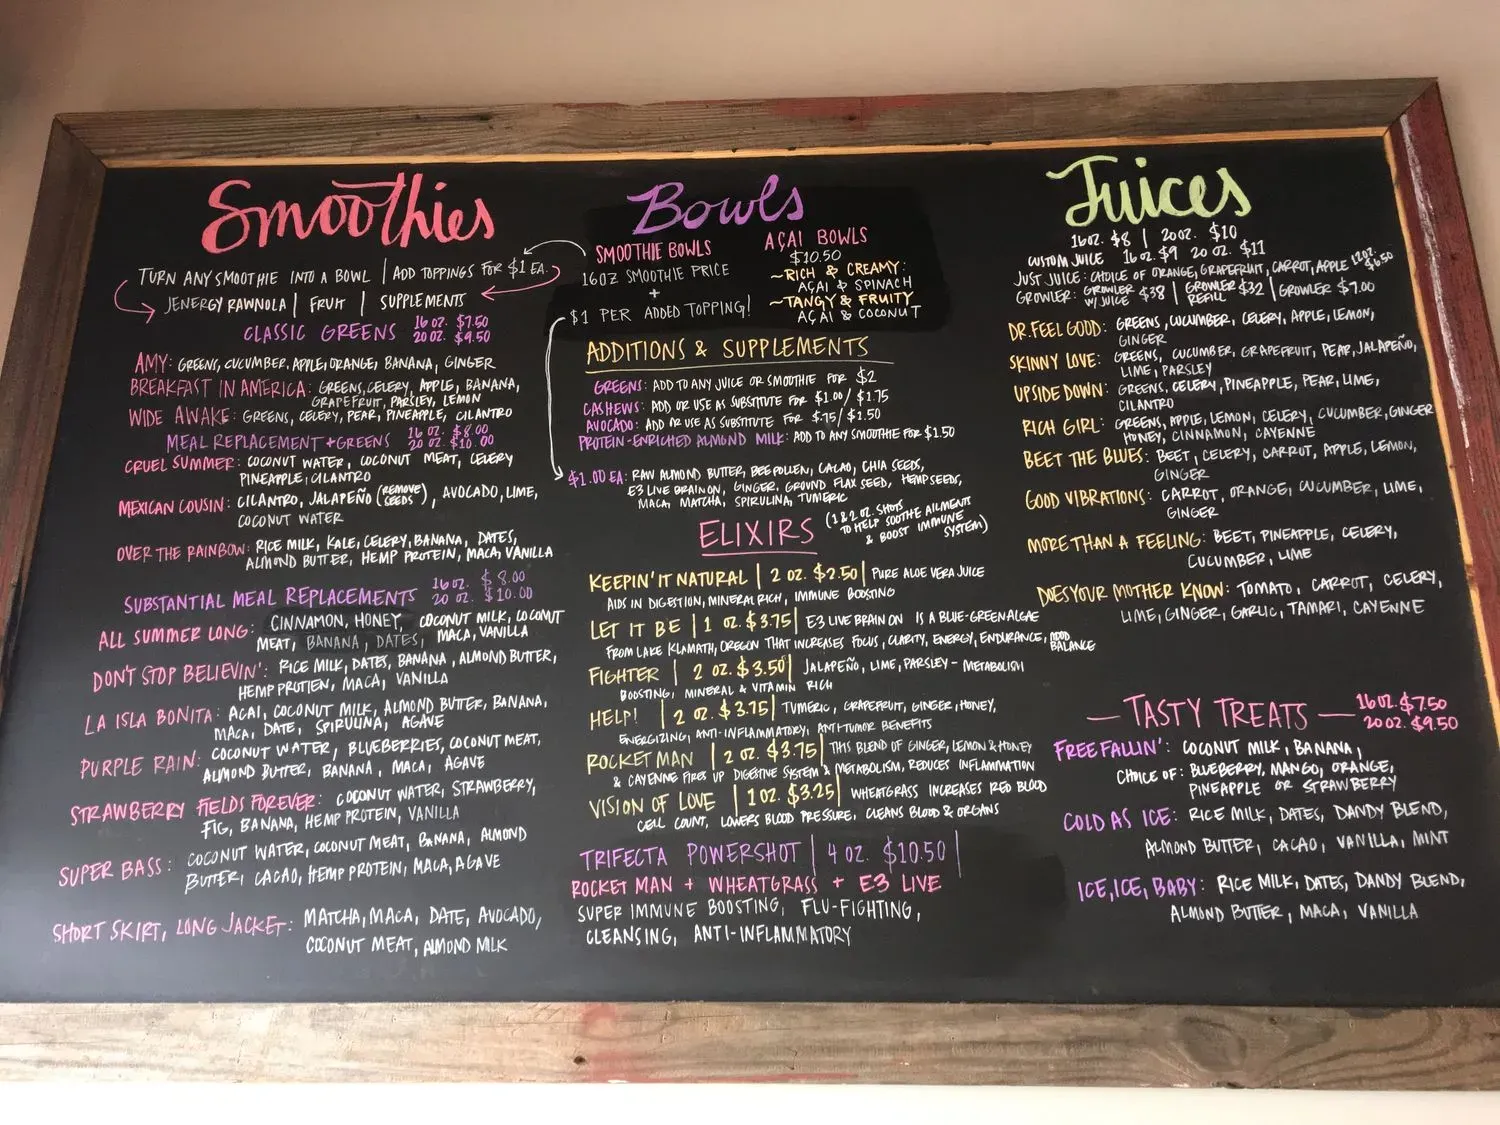 Smoothies
TURN ANY SMOOTHIE INTO A BOWL | ADD TOPPINGS FOR $1 EA.
JENERGY RAWNOLA | FRUIT | SUPPLEMENTS
CLASSIC GREENS 16 OZ. $7.50
20 OZ. $9.50
AMY: GREENS, CUCUMBER, APPLE, ORANGE, BANANA, GINGER
BREAKFAST IN AMERICA: GREENS, CELERY, APPLE, BANANA,
GRAPEFRUIT, PARSLEY, LEMON
WIDE AWAKE: GREENS, CELERY, PEAR, PINEAPPLE, CILANTRO
MEAL REPLACEMENT + GREENS 16 OZ. $8.00
20 OZ. $10.00
CRUEL SUMMER: COCONUT WATER, COCONUT MEAT, CELERY
PINEAPPLE, CILANTRO
MEXICAN COUSIN: CILANTRO, JALAPEÑO (REMOVE SEEDS), AVOCADO, LIME,
COCONUT WATER
OVER THE RAINBOW: RICE MILK, KALE, CELERY, BANANA, DATES,
ALMOND BUTTER, HEMP PROTEIN, MACA, VANILLA
SUBSTANTIAL MEAL REPLACEMENTS 16 OZ. $8.00
20 OZ. $10.00
ALL SUMMER LONG: CINNAMON, HONEY, COCONUT MILK, COCONUT
MEAT, BANANA, DATES, MACA, VANILLA
DON'T STOP BELIEVIN': RICE MILK, DATES, BANANA, ALMOND BUTTER,
HEMP PROTIEN, MACA, VANILLA
LA ISLA BONITA: ACAI, COCONUT MILK, ALMOND BUTTER, BANANA,
MACA, DATE, SPIRULINA, AGAVE
PURPLE RAIN: COCONUT WATER, BLUEBERRIES, COCONUT MEAT,
ALMOND BUTTER, BANANA, MACA, AGAVE
STRAWBERRY FIELDS FOREVER: COCONUT WATER, STRAWBERRY,
FIG, BANANA, HEMP PROTEIN, VANILLA
SUPER BASS: COCONUT WATER, COCONUT MEAT, BANANA, ALMOND
BUTTER, CACAO, HEMP PROTEIN, MACA, AGAVE
SHORT SKIRT, LONG JACKET: MATCHA, MACA, DATE, AVOCADO,
COCONUT MEAT, ALMOND MILK
Bowls
SMOOTHIE BOWLS
16 OZ SMOOTHIE PRICE
+
$1 PER ADDED TOPPING!
AÇAI BOWLS
$10.50
~RICH & CREAMY:
AÇAI & SPINACH
~TANGY & FRUITY
AÇAI & COCONUT
ADDITIONS & SUPPLEMENTS
GREENS: ADD TO ANY JUICE OR SMOOTHIE FOR $2
CASHEWS: ADD OR USE AS SUBSTITUTE FOR $1.00/$1.75
AVOCADO: ADD OR USE AS SUBSTITUTE FOR $.75/$1.50
PROTEIN-ENRICHED ALMOND MILK: ADD TO ANY SMOOTHIE FOR $1.50
$1.00 EA: RAW ALMOND BUTTER, BEE POLLEN, CACAO, CHIA SEEDS,
E3 LIVE BRAIN ON, GINGER, GROUND FLAX SEED, HEMP SEEDS,
MACA, MATCHA, SPIRULINA, TUMERIC
ELIXIRS (1 & 2 OZ. SHOTS
TO HELP SOOTHE AILMENTS
& BOOST IMMUNE SYSTEM)
KEEPIN' IT NATURAL | 2 OZ. $2.50 | PURE ALOE VERA JUICE
AIDS IN DIGESTION, MINERAL RICH, IMMUNE BOOSTING
LET IT BE | 1 OZ. $3.75 | E3 LIVE BRAIN ON IS A BLUE-GREEN ALGAE
FROM LAKE KLAMATH, OREGON THAT INCREASES FOCUS, CLARITY, ENERGY, ENDURANCE, MOOD BALANCE
FIGHTER | 2 OZ. $3.50 | JALAPEÑO, LIME, PARSLEY - METABOLISM
BOOSTING, MINERAL & VITAMIN RICH
HELP! | 2 OZ. $3.75 | TUMERIC, GRAPEFRUIT, GINGER, HONEY,
ENERGIZING, ANTI-INFLAMMATORY, ANTI-TUMOR BENEFITS
ROCKET MAN | 2 OZ. $3.75 | THIS BLEND OF GINGER, LEMON & HONEY
& CAYENNE FIRES UP DIGESTIVE SYSTEM & METABOLISM, REDUCES INFLAMMATION
VISION OF LOVE | 1 OZ. $3.25 | WHEATGRASS INCREASES RED BLOOD
CELL COUNT, LOWERS BLOOD PRESSURE, CLEANS BLOOD & ORGANS
TRIFECTA POWERSHOT | 4 OZ. $10.50 |
ROCKET MAN + WHEATGRASS + E3 LIVE
SUPER IMMUNE BOOSTING, FLU-FIGHTING,
CLEANSING, ANTI-INFLAMMATORY
Juices
16 OZ. $8 | 20 OZ. $10
CUSTOM JUICE 16 OZ $9 20 OZ. $11
JUST JUICE: CHOICE OF ORANGE, GRAPEFRUIT, CARROT, APPLE 12 OZ. $6.50
GROWLER: GROWLER W/ JUICE $38 | GROWLER REFILL $32 | GROWLER $7.00
DR. FEEL GOOD: GREENS, CUCUMBER, CELERY, APPLE, LEMON,
GINGER
SKINNY LOVE: GREENS, CUCUMBER, GRAPEFRUIT, PEAR, JALAPEÑO,
LIME, PARSLEY
UPSIDE DOWN: GREENS, CELERY, PINEAPPLE, PEAR, LIME,
CILANTRO
RICH GIRL: GREENS, APPLE, LEMON, CELERY, CUCUMBER, GINGER
HONEY, CINNAMON, CAYENNE
BEET THE BLUES: BEET, CELERY, CARROT, APPLE, LEMON,
GINGER
GOOD VIBRATIONS: CARROT, ORANGE, CUCUMBER, LIME,
GINGER
MORE THAN A FEELING: BEET, PINEAPPLE, CELERY,
CUCUMBER, LIME
DOES YOUR MOTHER KNOW: TOMATO, CARROT, CELERY,
LIME, GINGER, GARLIC, TAMARI, CAYENNE
— TASTY TREATS — 16 OZ. $7.50
20 OZ. $9.50
FREE FALLIN': COCONUT MILK, BANANA,
CHOICE OF: BLUEBERRY, MANGO, ORANGE,
PINEAPPLE OR STRAWBERRY
COLD AS ICE: RICE MILK, DATES, DANDY BLEND,
ALMOND BUTTER, CACAO, VANILLA, MINT
ICE, ICE, BABY: RICE MILK, DATES, DANDY BLEND,
ALMOND BUTTER, MACA, VANILLA